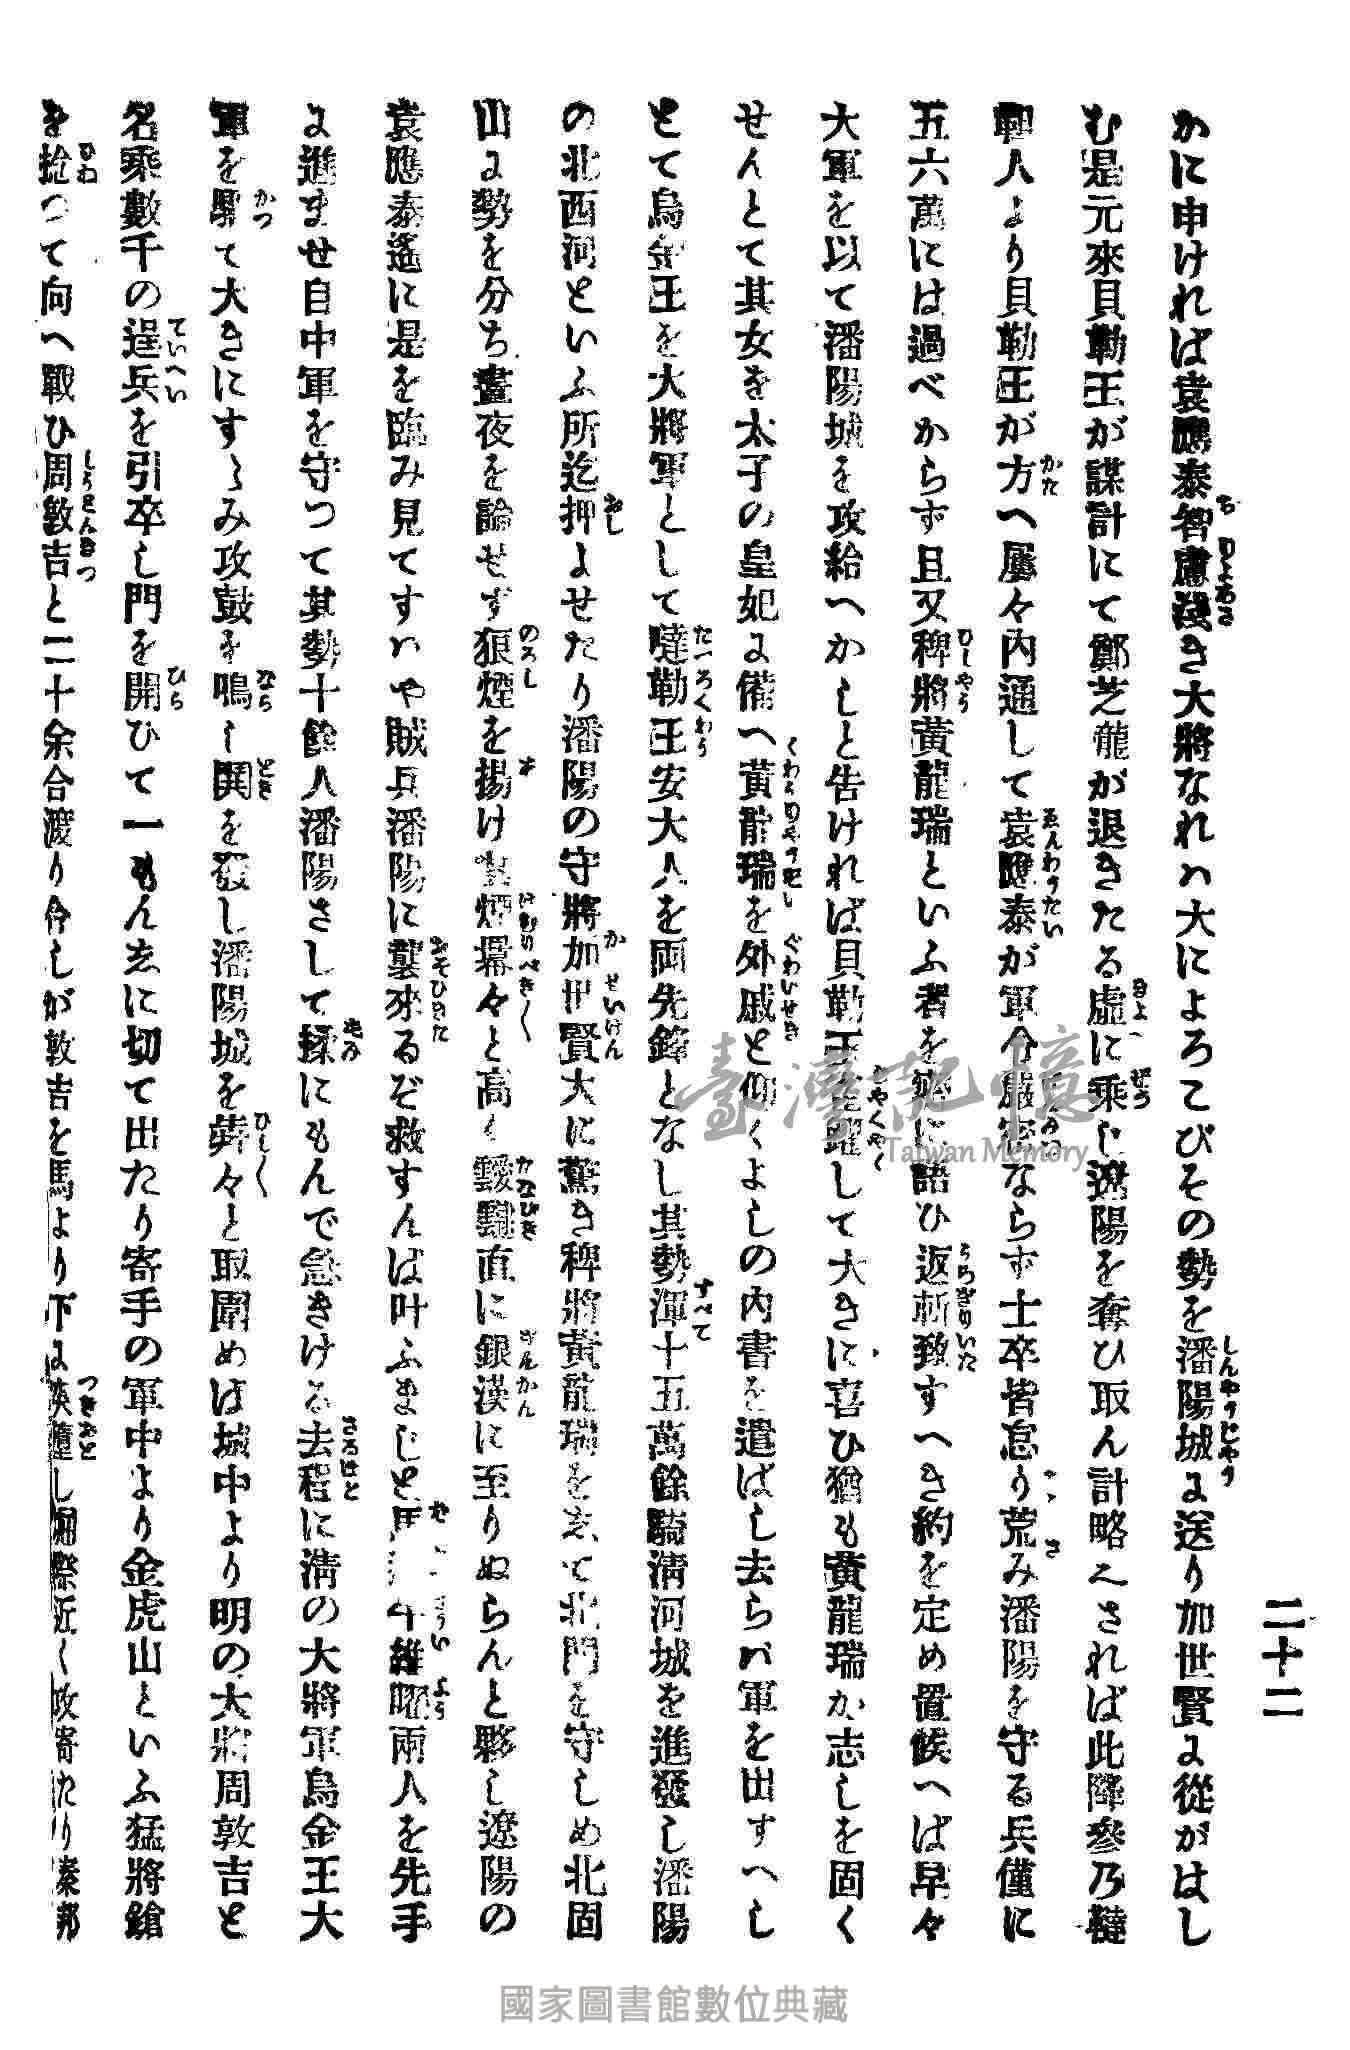 二十二
かに申ければ袁應泰智慮淺き大將なれハ大によろこびその勢を潘陽城よ送り加世賢よ從がはし
む是元來貝勒王が謀計にて鄭芝龍が退きたる虛に乘じ遼陽を奪ひ取ん計略也されば此降參乃韃
靼人より貝勒王が方へ屢々內通して袁應泰が軍令嚴密ならず士卒皆怠り荒み潘陽を守る兵僅に
五六萬には過べからず且又稗將黃龍瑞といふ者を密に語ひ返斬致すへき約を定め置候へば早々
大軍を以て潘陽城を攻給へかしと告ければ貝勒王雀躍して大きに喜ひ猶も黃龍瑞か志しを固く
せんとて其女を太子の皇妃よ備へ黃龍瑞を外戚と仰くよしの內書を遣ばし去らハ軍を出すへし
とて烏金王を大將軍として噠勒王安大人を両先鋒となし其勢渾十五萬餘騎淸河城を進發し潘陽
の北西河といふ所迄押よせたり潘陽の守將加世賢大に驚き稗將黃龍瑞をして北門を守しめ北固
山よ勢を分ち晝夜を論せず狼煙を揚け 煙 々と高く 直に銀漢に至りぬらんと夥し遼陽の
袁應泰遙に是を臨み見てすハや賊兵潘陽に襲來るぞ救すんば叶ふまじと 維曜兩人を先手
よ進ませ自中軍を守つて其勢十餘人潘陽さして揉にもんで急きける去程に淸の大將軍烏金王大
軍を驅て大きにすゝみ攻鼓を鳴し鬨を發し潘陽城を犇々と取圍めば城中より明の大將周敦吉と
名乘數千の逞兵を引卒し門を開ひて一もんじに切て出たり寄手の軍中より金虎山といふ猛將鎗
を捻つて向へ戰ひ周敦吉と二十余合渡り合しが敦吉を馬より下よ し 際近く攻寄たり秦邦
臺灣記憶
Taiwan Memory
國家圖書館數位典藏